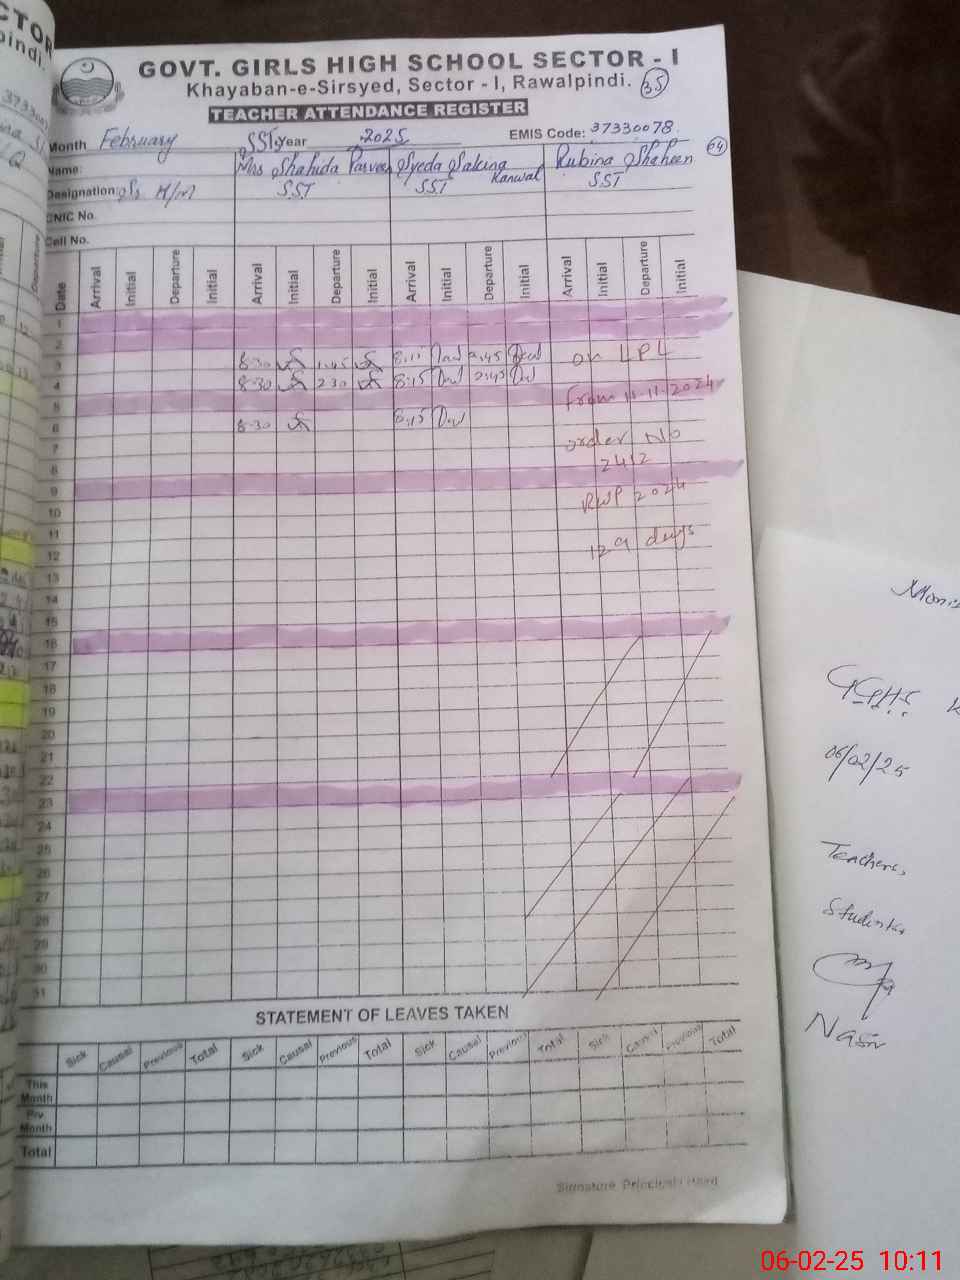 GOVT. GIRLS HIGH SCHOOL SECTOR - I
Khayaban-e-Sirsyed, Sector - I, Rawalpindi. 35
TEACHER ATTENDANCE REGISTER
Month February SST Year 2025 EMIS Code: 37330078
Name: Mrs Shahida Parveen Syeda Sakina Kanwal Rubina Shaheen 64
Designation: Sr H/M SST SST SST
CNIC No.
Cell No.
Date Arrival Initial Departure Initial Arrival Initial Departure Initial Arrival Initial Departure Initial Arrival Initial Departure Initial
1
2
3 8-30 1.45 8:15 2.45 on LPL
4 8-30 230 8:15 2:45
5 From 11.11.2024
6 8-30 8:15
7 order No
8 2412
9
10 RWP 2024
11
12 129 days
13
14
15
16
17
18
19
20
21
22
23
24
25
26
27
28
29
30
31
STATEMENT OF LEAVES TAKEN
Sick Causal Previous Total Sick Causal Previous Total Sick Causal Previous Total Sick Causal Previous Total
This Month
Prv Month
Total
Signature Principal / Head
CTOR
pindi.
Departure
GGHS
06/02/25
Teachers,
Students
06-02-25 10:11